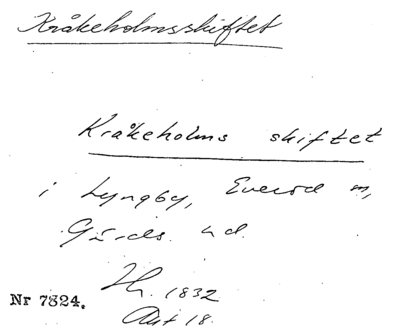 Kråkeholmsskiftet
Kråkeholms skiftet
i Lyngby, Everöd m,
Gärds hd.
1832
Akt 18.
Nr 7824.